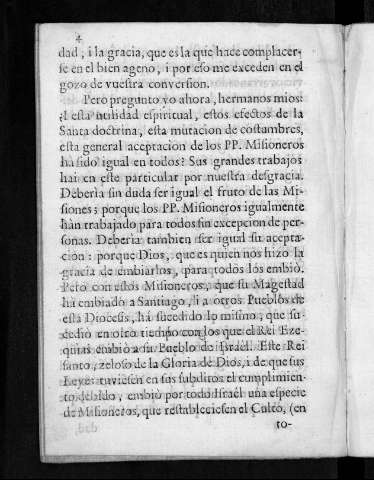 4
dad, i la gracia, que es la que hace complacer-
se en el bien ageno, i por eso me exceden en el
gozo de vuestra conversion.
Pero pregunto yo ahora, hermanos mios:
¿I esta utilidad espiritual, estos efectos de la
Santa doctrina, esta mutacion de costumbres,
esta general aceptacion de los PP. Misioneros
há sido igual en todos? Sus grandes trabajos
hai en este particular por nuestra desgracia.
Deberìa sin duda ser igual el fruto de las Mi-
siones; porque los PP. Misioneros igualmente
hàn trabajado para todos sin excepcion de per-
sonas. Deberìa tambien ser igual su acepta-
cion: porque Dios, que es quien nos hizo la
gracia de embiarlos, para todos los embiò.
Pero con estos Misioneros, que su Magestad
hà embiado a Santiago, i a otros Pueblos de
esta Diocesis, há sucedido lo mismo, que su-
cediò en otro tiempo con los que el Rei Eze-
quias embiò a su Pueblo de Israel. Este Rei
santo, zeloso de la Gloria de Dios, i de que sus
Leyes tuviesen en sus subditos el cumplimien-
to, embiò por todo Israèl una especie
de Misioneros, que restableciesen el Culto, (en
to-